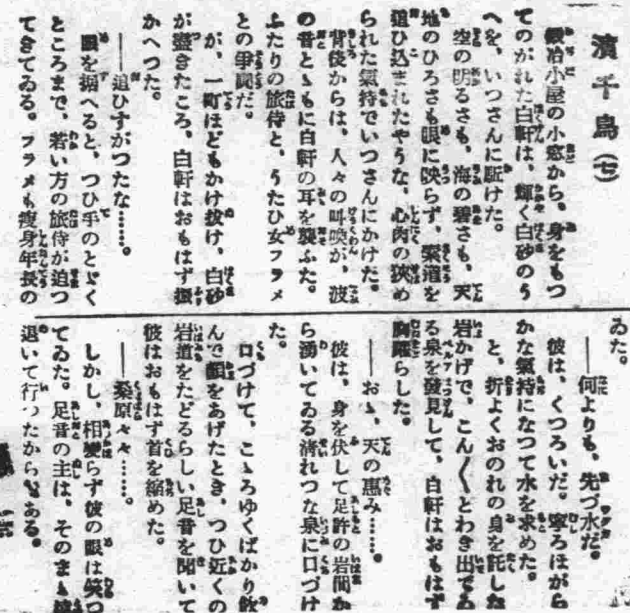 濱千鳥(七)
鍛冶小屋の小窓から、身をもつ
てのがれた白軒は、輝く白砂のう
へを、いつさんに駈けた。
空の明るさも、海の碧さも、天
地のひろさも眼に映らず、索道を
追ひ込まれたやうな、心肉の狹め
られた氣持でいつさんにかけた。
背後からは、人々の叫喚が、波
の音とゝもに白軒の耳を襲ふた。
ふたりの旅侍と、うたひ女フラメ
との爭鬪だ。
が、一町ほどもかけ拔け、白砂
が盡きたころ、白軒はおもはず振
かへつた。
――追ひすがつたな……。
眼を据へると、つひ手のとゞく
ところまで、若い方の旅侍が追つ
てきてゐる。フラメも瘦身年長の
ゐた。
――何よりも、先づ水だ。
彼は、くつろいだ。寧ろほがら
かな氣持になつて水を求めた。
と、折よくおのれの身を託した
岩かげで、こん〳〵とわき出てゐ
る泉を發見して、白軒はおもはず
胸躍らした。
――おゝ、天の惠み……。
彼は、身を伏して足許の岩間か
ら湧いてゐる淸れつな泉に口づけ
た。
口づけて、こゝろゆくばかり飮
んで顏をあげたとき、つひ近くの
岩道をたどるらしい足音を聞いて
彼はおもはず首を縮めた。
――桑原々々……。
しかし、相變らず彼の眼は笑つ
てゐた。足音の主は、そのまゝ
退いて行つたからである。